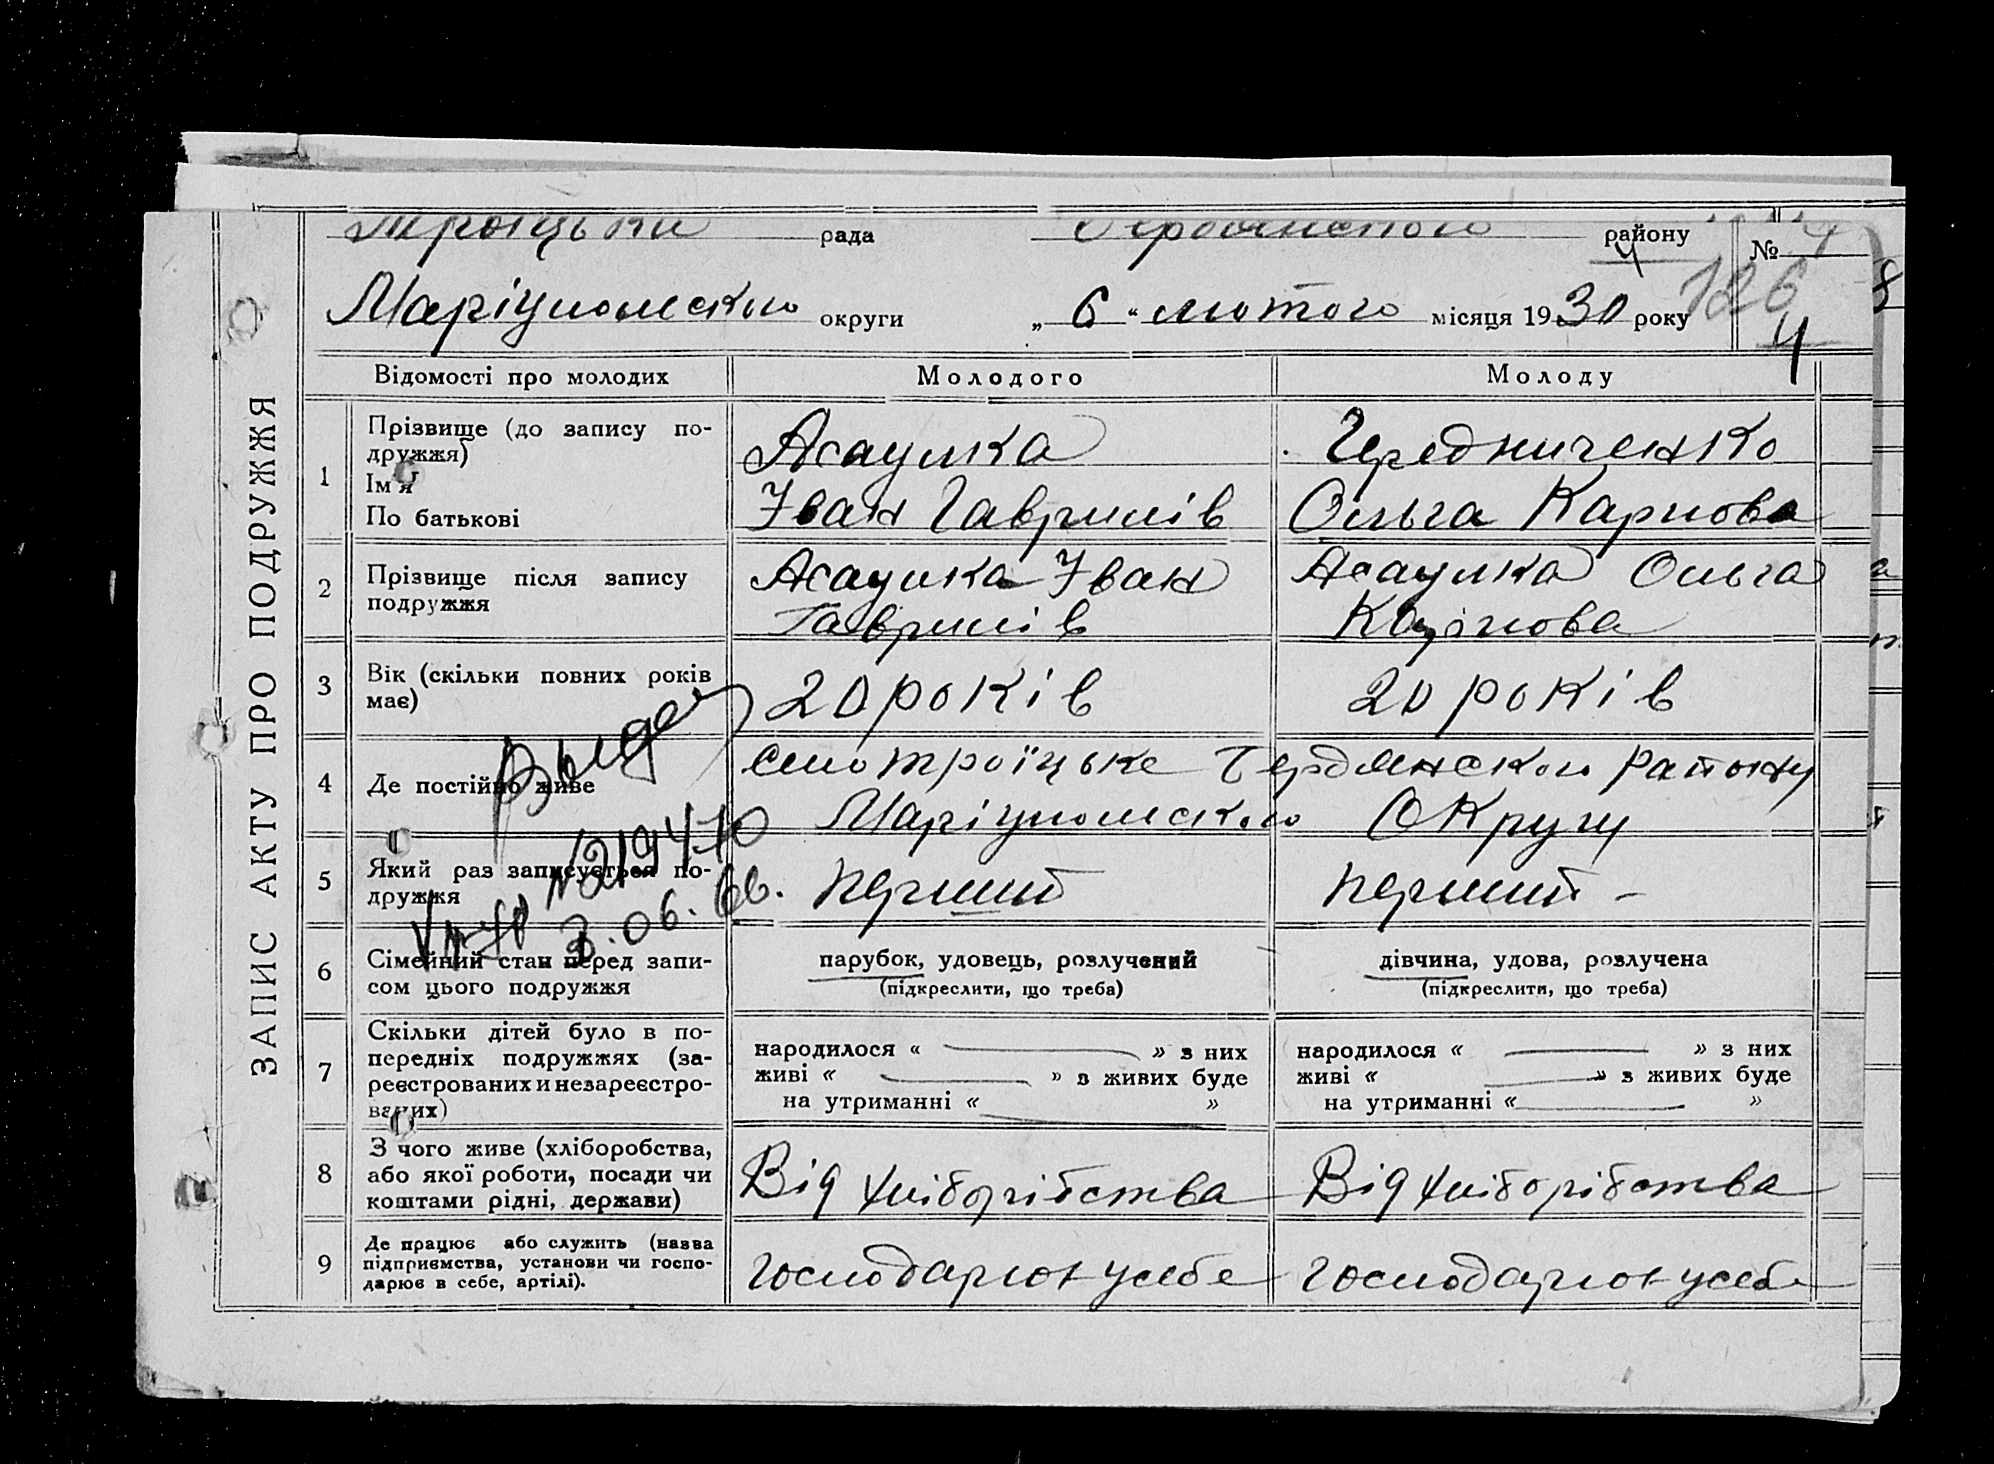 ЗАПИС АКТУ ПРО ПОДРУЖЖЯ
Троіцька рада району № 4
4 126
Маріупольської округи „ 6 “ лютого місяця 1930 року
4
Відомості про молодих Молодого Молоду
1 Прізвище (до запису по-
дружжя)
Ім'я
По батькові
Асаулка
Іван Гаврилів
Чередниченко
Ольга Карпова
2 Прізвище після запису
подружжя
Асаулка Іван
Гаврилів
Асаулка Ольга
Карпова
3 Вік (скільки повних років
має)
20 років
20 років
4 Де постійно живе
Село троїцьке Бердянского району
Маріупольского Округу
5 Який раз записується по-
дружжя
перший
перший –
Выдан
№219470
3.06.66.
6 Сімейний стан перед запи-
сом цього подружжя
парубок, удовець, розлучений
(підкреслити, що треба)
дівчина, удова, розлучена
(підкреслити, що треба)
7 Скільки дітей було в по-
передніх подружжях (за-
реєстрованих и незареєстро-
ваних)
народилося « » з них
живі « » з живих буде
на утриманні « »
народилося « » з них
живі « » з живих буде
на утриманні « »
8 З чого живе (хліборобства,
або якої роботи, посади чи
коштами рідні, держави)
Від хліборібства
Від хліборібства
9 Де працює або служить (назва
підприємства, установи чи госпо-
дарює в себе, артілі).
господарює усебе
господарює усебе